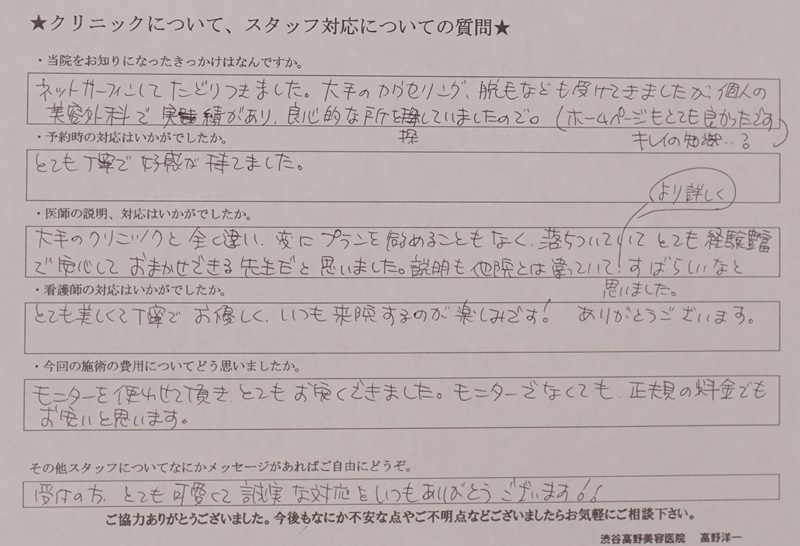 ★クリニックについて、スタッフ対応についての質問★
・当院をお知りになったきっかけはなんですか。
ネットサーフィンしてたどりつきました。大手のカウンセリング、脱毛なども受けてきましたが、個人の
美容外科で実績があり、良心的な所を探していましたので。(ホームページもとても良かったです
キレイの知識‥?)
・予約時の対応はいかがでしたか。
とても丁寧で好感が持てました。
・医師の説明、対応はいかがでしたか。
より詳しく
大手のクリニックと全く違い、変にプランを勧めることもなく、落ちついていてとても経験豊富
で安心しておまかせできる先生だと思いました。説明も他院とは違っていて!すばらしいなと
思いました。
・看護師の対応はいかがでしたか。
とても美しくて丁寧でお優しく、いつも来院するのが楽しみです!ありがとうございます。
・今回の施術の費用についてどう思いましたか。
モニターを使わせて頂き、とてもお安くできました。モニターでなくても、正規の料金でも
お安いと思います。
その他スタッフについてなにかメッセージがあればご自由にどうぞ。
受付の方、とても可愛くて誠実な対応をいつもありがとうございます!!
ご協力ありがとうございました。今後もなにか不安な点やご不明点などございましたらお気軽にご相談下さい。
渋谷高野美容医院 高野洋一